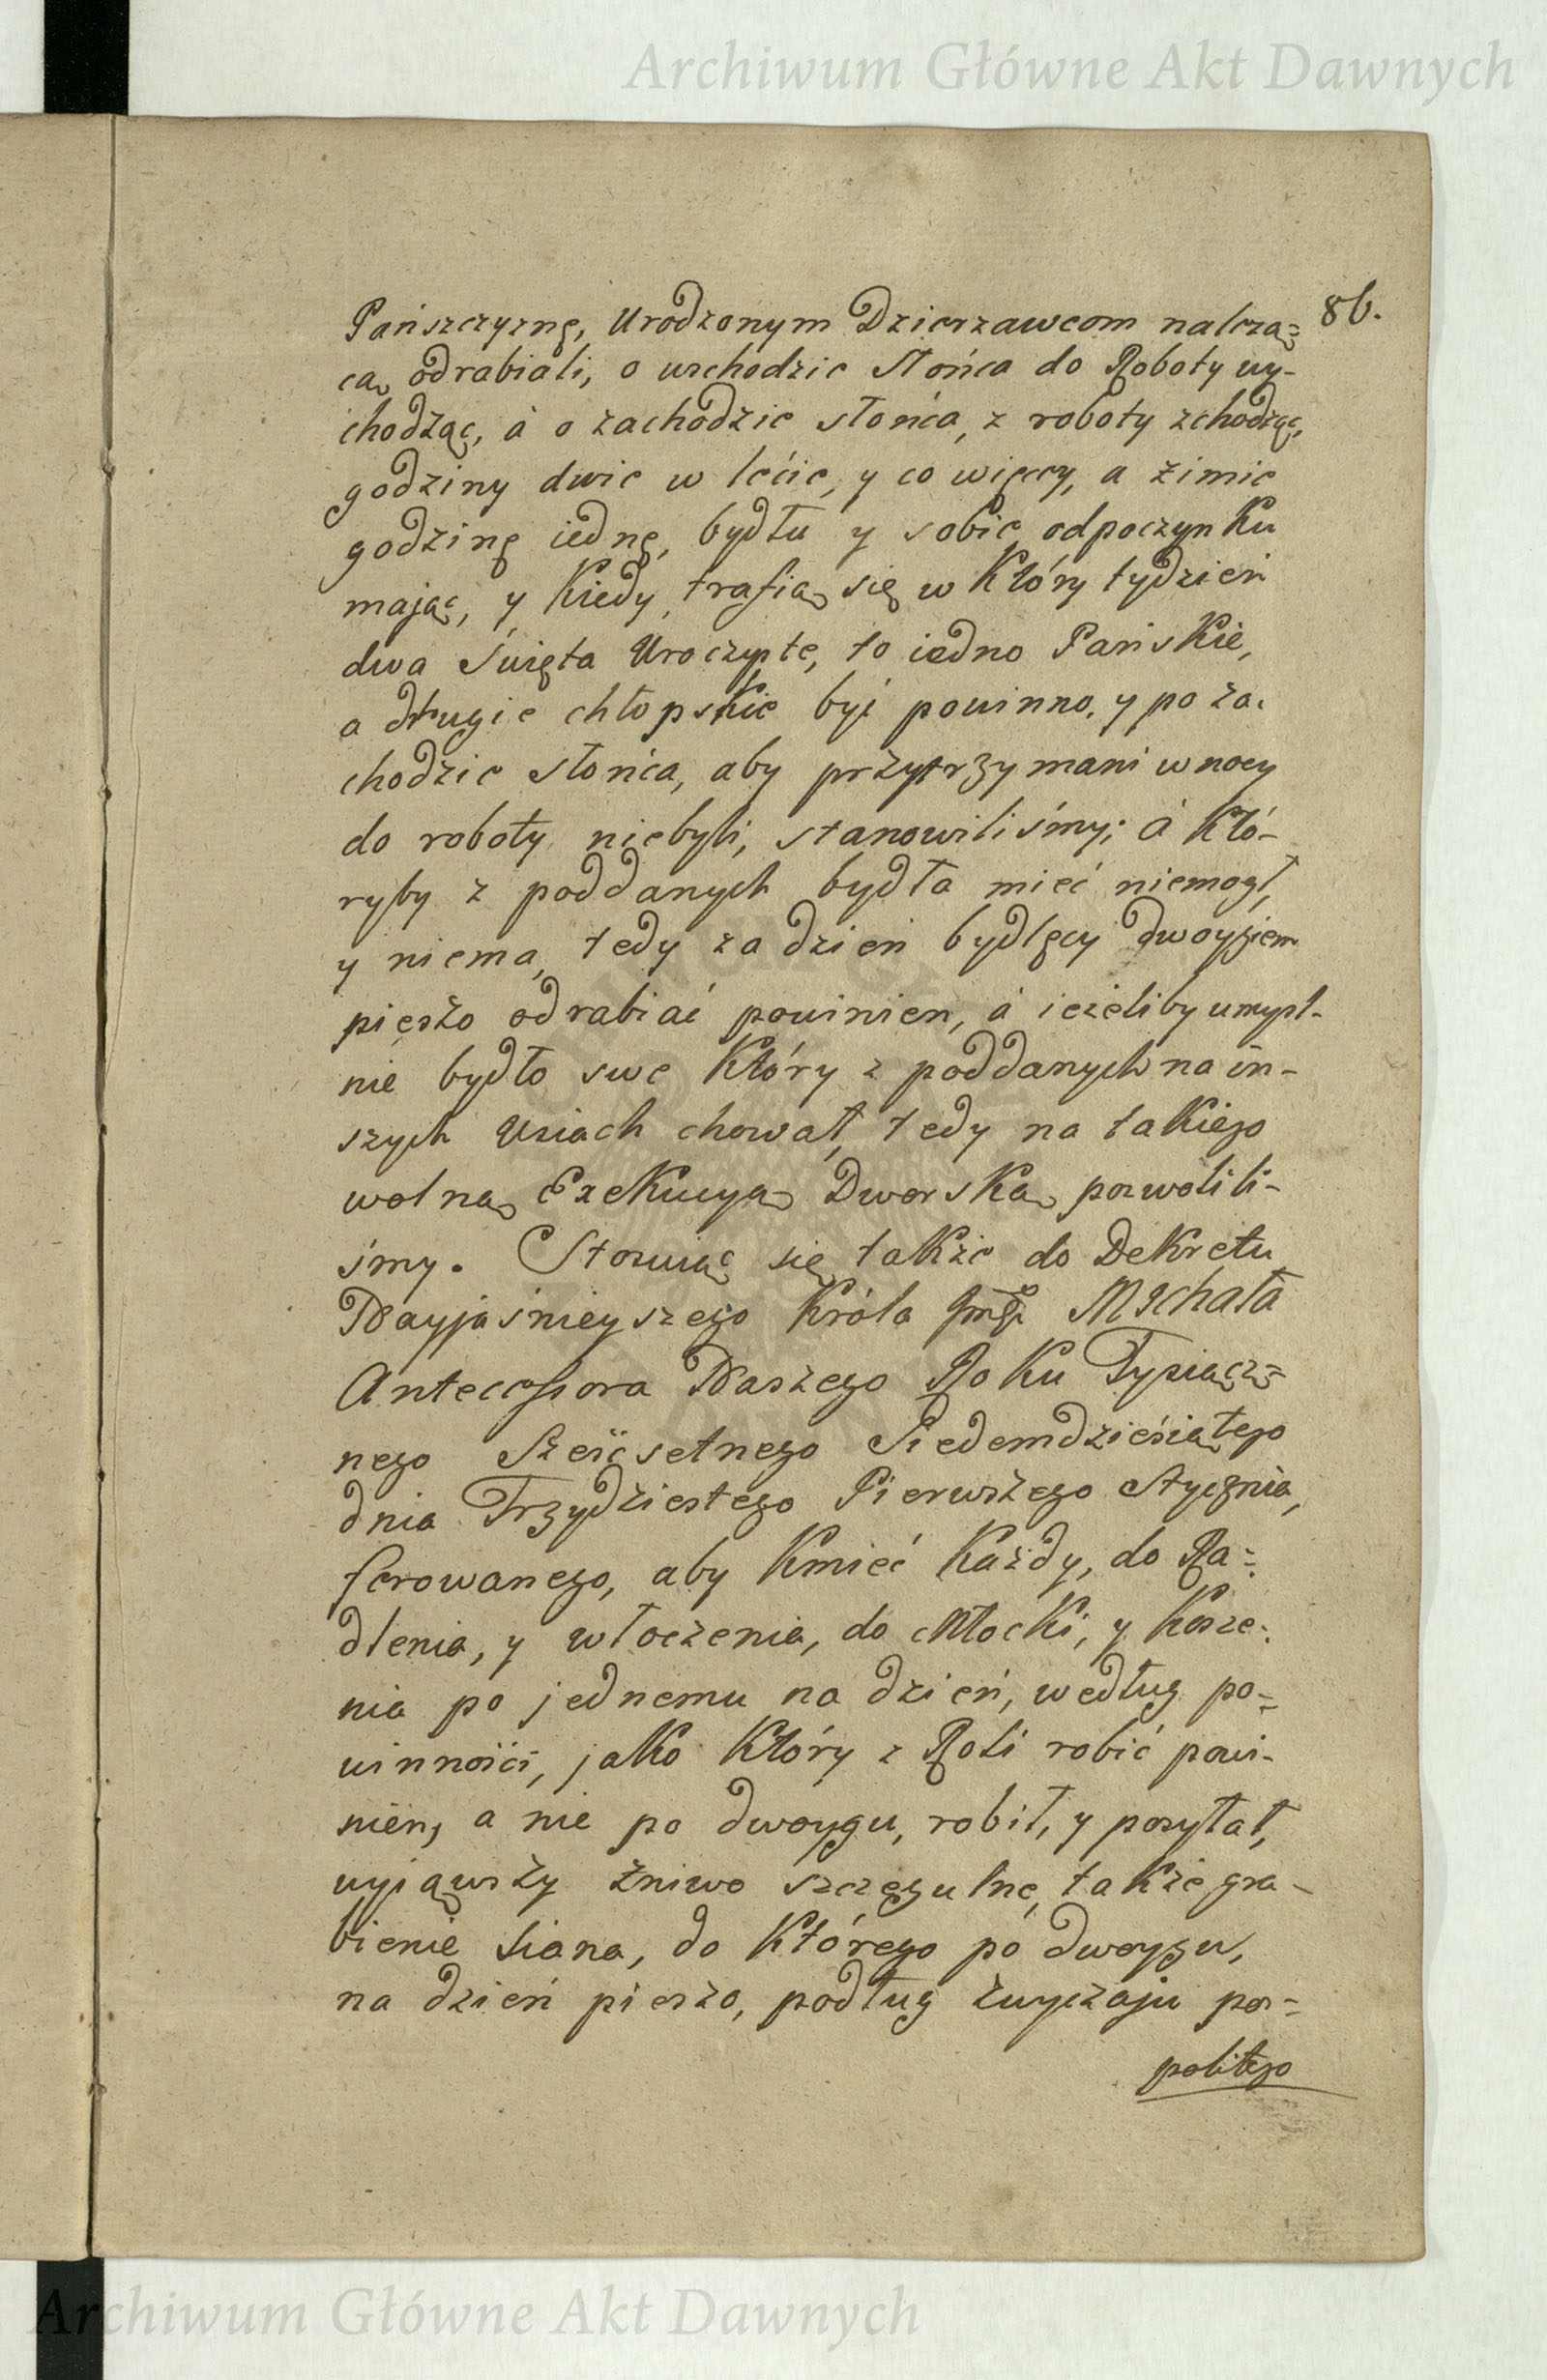 Archiwum Główne Akt Dawnych
86.
Pańszczyznę, Urodzonym Dzierzawcom nalezą=
cą odrabiali, o wschodzie słońca do Roboty wy-
chodżąc, à o zachodzie słońca, z roboty zchodząc,
godziny dwie w lécie, y co więcey, a zimie
godzinę iednę, bydłu y sobie odpoczynku
mając, y kiedy trafią się w który tydzień
dwa święta Uroczyste, to iedno Pańskie,
a drugie chłopskie być powinno, y po za-
chodzie słońca, aby przytrzymani w nocy
do roboty niebyli, stanowiliśmy; à któ-
ryby z poddanych bydła mieć niemogł,
y niema, tedy za dzień bydlęcy dwoygiem
pieszo odrabiać powinien, à ieżeliby umyśl-
nie bydło swe który z poddanych na in-
szych Wsiach chował, tedy na takiego
wolną Exekucyą Dworską pozwolili-
śmy. Stosuiąc się także do Dekretu
Nayjaśnieyszego Króla Jmći Michała
Antecessora Naszego Roku Tysiącz=
nego Sześćsetnego Siedemdzieśiątego
dnia Trzydziestego Pierwszego Stycznia,
ferowanego, aby kmieć każdy, do Ra=
dlenia, y włoczenia, do Młocki, y kosze=
nia po jednemu na dzień, według po=
winności, jako który z Roli robić powi-
nien, a nie po dwoygu, robił, y posyłał,
wyiąwszy żniwo szczegulne, także gra-
bienie siana, do którego po dwoygu,
na dzień pieszo, podług zwyczaju pos=
politego
Archiwum Główne Akt Dawnych